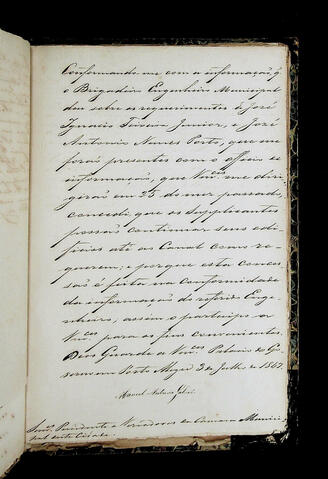 Conformando-me com a informação q̃
o Brigadeiro Engenheiro Municipal
deu sobre os requerimentos de José
Ignacio Teixeira Junior, e José
Antonio Nunes Porto, que me
forão presentes com o officio de
informação, que Vm.ces me diri
girão em 25 do mez passado,
concedi que os supplicantes
possão continuar seus edi
ficios até ao Canal como re
querem; e porque esta conces
são é feita na conformidade
da informação do referido Enge
nheiro, assim o participo a
Vm.ces para os fins convenientes.
Deos Guarde a Vm.ces Palacio do Go
verno em Porto Alegre 2 de Julho de 1847.
Manoel
Snr.es Presidente e Vereadores da Camara Munici
pal desta Cidade.